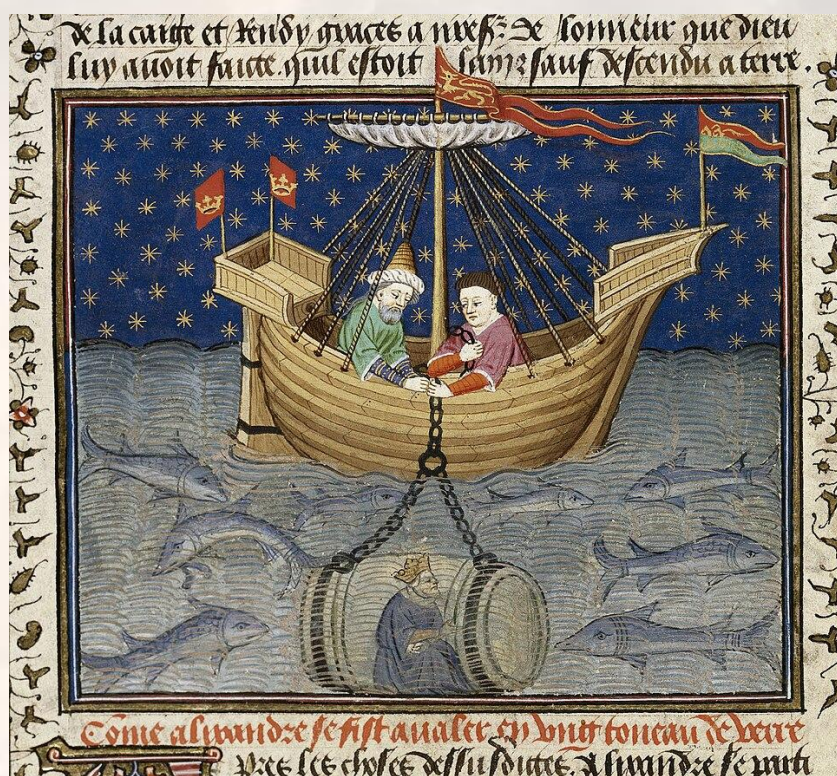 de la caige et rendy graces a nress: de lonneur que dieu
luy auoit faicte. quil estoit sayn & sauf descendu a terre.
Come alixandre se fist aualer en vng toneau de verre
pres les choses dessusdictes. Alixandre se parti